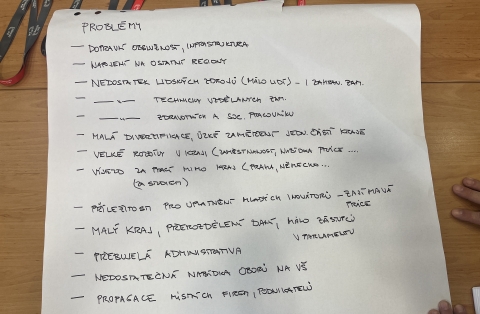 PROBLÉMY
— DOPRAVNÍ OBSLUŽNOST, INFRASTRUKTURA
— NAPOJENÍ NA OSTATNÍ REGIONY
— NEDOSTATEK LIDSKÝCH ZDROJŮ (MÁLO LIDÍ) – I ZAHRAN. ZAM.
— —„— TECHNICKY VZDĚLANÝCH ZAM.
— —„— ZDRAVOTNÍCH A SOC. PRACOVNÍKŮ
— MALÁ DIVERZIFIKACE, ÚZKÉ ZAMĚŘENÍ JEDN. ČÁSTÍ KRAJE
— VELKÉ ROZDÍLY V KRAJI (ZAMĚSTNANOST, NABÍDKA PRÁCE ....
— VÝJEZD ZA PRACÍ MIMO KRAJ (PRAHA, NĚMECKO...
(ZA STUDIEM)
— PŘÍLEŽITOSTI PRO UPLATNĚNÍ MLADÝCH INOVÁTORŮ – ZAJÍMAVÁ
PRÁCE
— MALÝ KRAJ, PŘEROZDĚLENÍ DANÍ, MÁLO ZÁSTUPCŮ
V PARLAMENTU
— PŘEBUJELÁ ADMINISTRATIVA
— NEDOSTATEČNÁ NABÍDKA OBORŮ NA VŠ
— PROPAGACE MÍSTNÍCH FIREM, PODNIKATELŮ